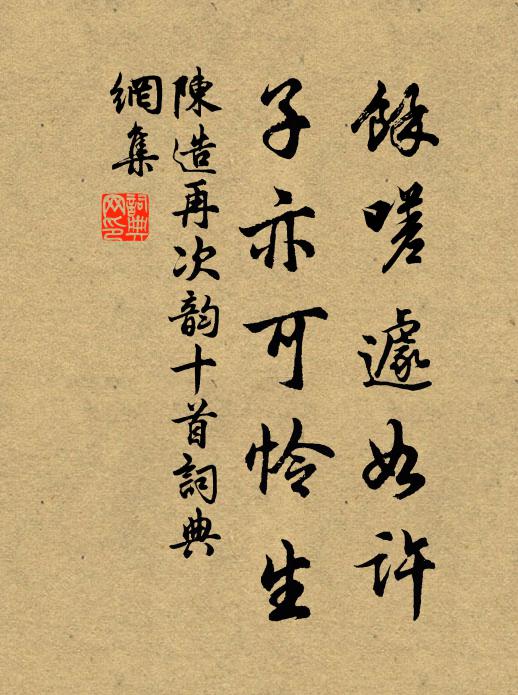 餘嗟遽如許
子亦可怜生
陳造再次韵十首詞典
網集
詞典网印